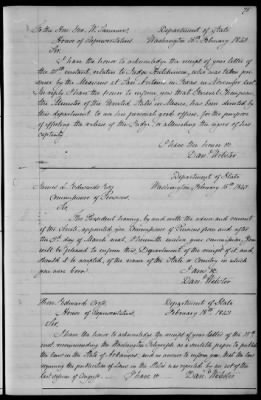 To the Hon. Geo. W. Summers, Department of State
House of Representatives. Washington 16th February 1843
Sir,
I have the honor to acknowledge the receipt of your letter of
the instant relative to Judge Hutchinson, who was taken pri-
soner by the Mexicans at San Antonio in Texas in last.
In reply I have the honor to inform you that General Thompson
the Minister of the United States in Mexico, has been directed by
this department to use his personal good offices for the purpose
of effecting the release of the Judge or alleviating the rigors of his
captivity.
I have the honor &c
Danl Webster
Department of State
James L. Edwards Esq. Washington, February 16th 1843
Commissioner of Pensions.
Sir,
The President having, by and with the advice and consent
of the Senate, appointed you Commissioner of Pensions from and after
the 3d day of March next, I herewith receive your commission. You
will be pleased to inform this Department of the receipt of it and
should it be accepted, of the name of the State or Country in which
you were born.
I am &c
Danl Webster
Hon. Edward Cross, Department of State
House of Representatives. February 18th 1843
Sir,
I have the honor to acknowledge the receipt of your letter of the
and recommending the Washington Telegraph as a suitable paper to publish
the laws in the State of Arkansas, and in answer to inform you, that the law
requiring the publication of laws in the State was repealed by an act of the
last session of Congress. I have &c Danl Webster